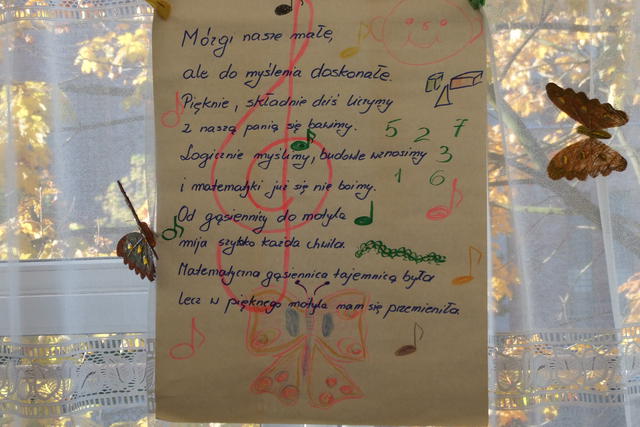 Mózgi nasze małe,
ale do myślenia doskonałe.
Pięknie, składnie dziś liczymy
z naszą panią się bawimy.
Logicznie myślimy, budowle wznosimy
i matematyki już się nie boimy.
Od gąsienicy do motyla
mija szybko każda chwila.
Matematyczna gąsiennica tajemnicą była
lecz w pięknego motyla nam się przemieniła.
5 2 7
3
1 6